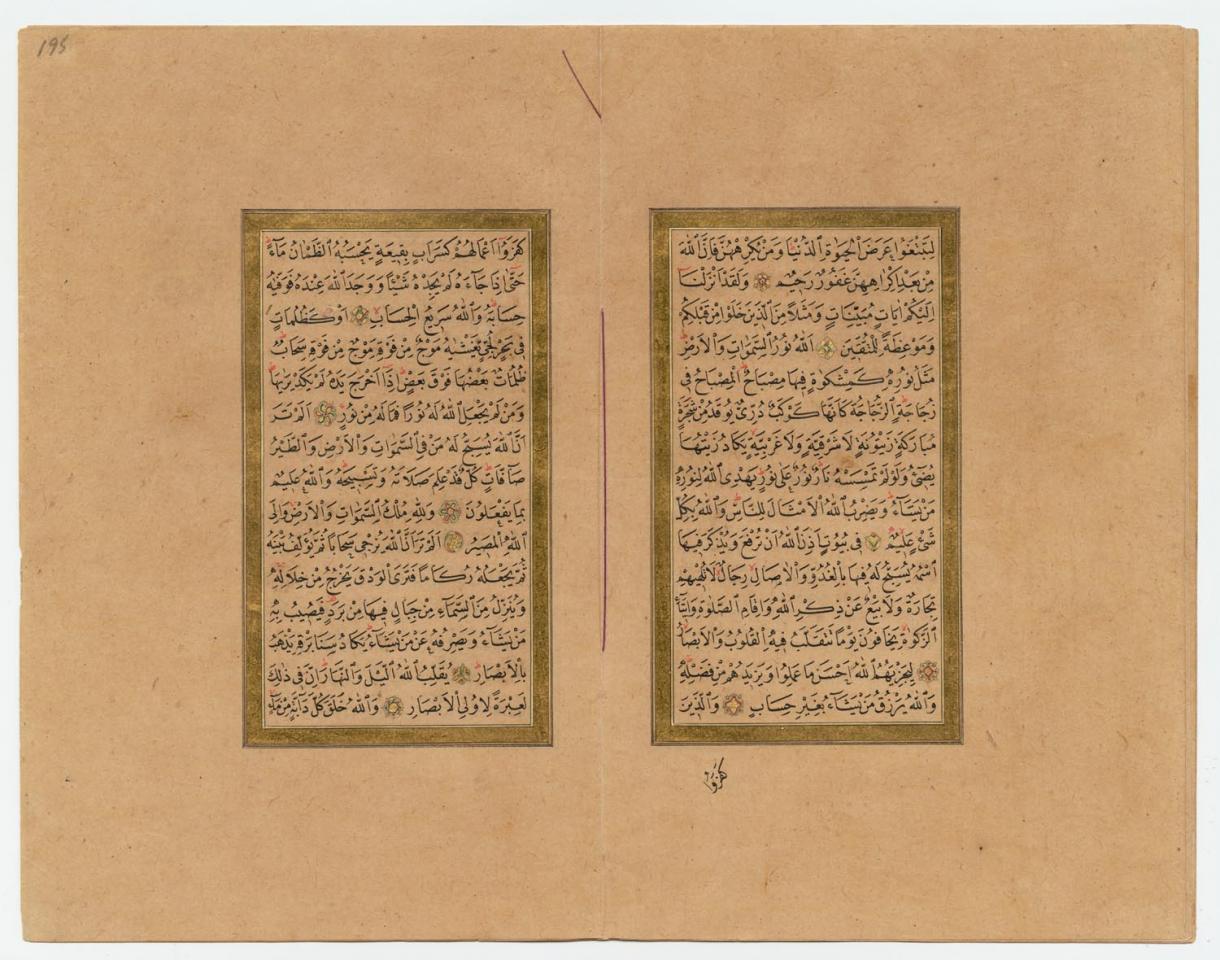 لِتَبْتَغُوا عَرَضَ الْحَيٰوةِ الدُّنْيَا وَمَنْ يُكْرِهْهُنَّ فَاِنَّ اللّٰهَ
مِنْ بَعْدِ اِكْرَاهِهِنَّ غَفُورٌ رَحِيمٌ وَلَقَدْ اَنْزَلْنَا
اِلَيْكُمْ اٰيَاتٍ مُبَيِّنَاتٍ وَمَثَلًا مِنَ الَّذِينَ خَلَوْا مِنْ قَبْلِكُمْ
وَمَوْعِظَةً لِلْمُتَّقِينَ اَللّٰهُ نُورُ السَّمٰوَاتِ وَالْاَرْضِ
مَثَلُ نُورِهِ كَمِشْكٰوةٍ فِيهَا مِصْبَاحٌ اَلْمِصْبَاحُ فِى
زُجَاجَةٍ اَلزُّجَاجَةُ كَاَنَّهَا كَوْكَبٌ دُرِّىٌّ يُوقَدُ مِنْ شَجَرَةٍ
مُبَارَكَةٍ زَيْتُونَةٍ لَا شَرْقِيَّةٍ وَلَا غَرْبِيَّةٍ يَكَادُ زَيْتُهَا
يُضِىءُ وَلَوْ لَمْ تَمْسَسْهُ نَارٌ نُورٌ عَلٰى نُورٍ يَهْدِى اللّٰهُ لِنُورِهِ
مَنْ يَشَاءُ وَيَضْرِبُ اللّٰهُ الْاَمْثَالَ لِلنَّاسِ وَاللّٰهُ بِكُلِّ
شَىْءٍ عَلِيمٌ فِى بُيُوتٍ اَذِنَ اللّٰهُ اَنْ تُرْفَعَ وَيُذْكَرَ فِيهَا
اسْمُهُ يُسَبِّحُ لَهُ فِيهَا بِالْغُدُوِّ وَالْاٰصَالِ رِجَالٌ لَا تُلْهِيهِمْ
تِجَارَةٌ وَلَا بَيْعٌ عَنْ ذِكْرِ اللّٰهِ وَاِقَامِ الصَّلٰوةِ وَاِيتَاءِ
الزَّكٰوةِ يَخَافُونَ يَوْمًا تَتَقَلَّبُ فِيهِ الْقُلُوبُ وَالْاَبْصَارُ
لِيَجْزِيَهُمُ اللّٰهُ اَحْسَنَ مَا عَمِلُوا وَيَزِيدَهُمْ مِنْ فَضْلِهِ
وَاللّٰهُ يَرْزُقُ مَنْ يَشَاءُ بِغَيْرِ حِسَابٍ وَالَّذِينَ
كَفَرُوا
195
كَفَرُوا اَعْمَالُهُمْ كَسَرَابٍ بِقِيعَةٍ يَحْسَبُهُ الظَّمْاٰنُ مَاءً
حَتّٰى اِذَا جَاءَهُ لَمْ يَجِدْهُ شَيْئًا وَوَجَدَ اللّٰهَ عِنْدَهُ فَوَفّٰيهُ
حِسَابَهُ وَاللّٰهُ سَرِيعُ الْحِسَابِ اَوْ كَظُلُمَاتٍ
فِى بَحْرٍ لُجِّىٍّ يَغْشٰيهُ مَوْجٌ مِنْ فَوْقِهِ مَوْجٌ مِنْ فَوْقِهِ سَحَابٌ
ظُلُمَاتٌ بَعْضُهَا فَوْقَ بَعْضٍ اِذَا اَخْرَجَ يَدَهُ لَمْ يَكَدْ يَرٰيهَا
وَمَنْ لَمْ يَجْعَلِ اللّٰهُ لَهُ نُورًا فَمَا لَهُ مِنْ نُورٍ اَلَمْ تَرَ
اَنَّ اللّٰهَ يُسَبِّحُ لَهُ مَنْ فِى السَّمٰوَاتِ وَالْاَرْضِ وَالطَّيْرُ
صَافَّاتٍ كُلٌّ قَدْ عَلِمَ صَلَاتَهُ وَتَسْبِيحَهُ وَاللّٰهُ عَلِيمٌ
بِمَا يَفْعَلُونَ وَلِلّٰهِ مُلْكُ السَّمٰوَاتِ وَالْاَرْضِ وَاِلَى
اللّٰهِ الْمَصِيرُ اَلَمْ تَرَ اَنَّ اللّٰهَ يُزْجِى سَحَابًا ثُمَّ يُؤَلِّفُ بَيْنَهُ
ثُمَّ يَجْعَلُهُ رُكَامًا فَتَرَى الْوَدْقَ يَخْرُجُ مِنْ خِلَالِهِ
وَيُنَزِّلُ مِنَ السَّمَاءِ مِنْ جِبَالٍ فِيهَا مِنْ بَرَدٍ فَيُصِيبُ بِهِ
مَنْ يَشَاءُ وَيَصْرِفُهُ عَنْ مَنْ يَشَاءُ يَكَادُ سَنَا بَرْقِهِ يَذْهَبُ
بِالْاَبْصَارِ يُقَلِّبُ اللّٰهُ الَّيْلَ وَالنَّهَارَ اِنَّ فِى ذٰلِكَ
لَعِبْرَةً لِاُولِى الْاَبْصَارِ وَاللّٰهُ خَلَقَ كُلَّ دَابَّةٍ مِنْ مَاءٍ